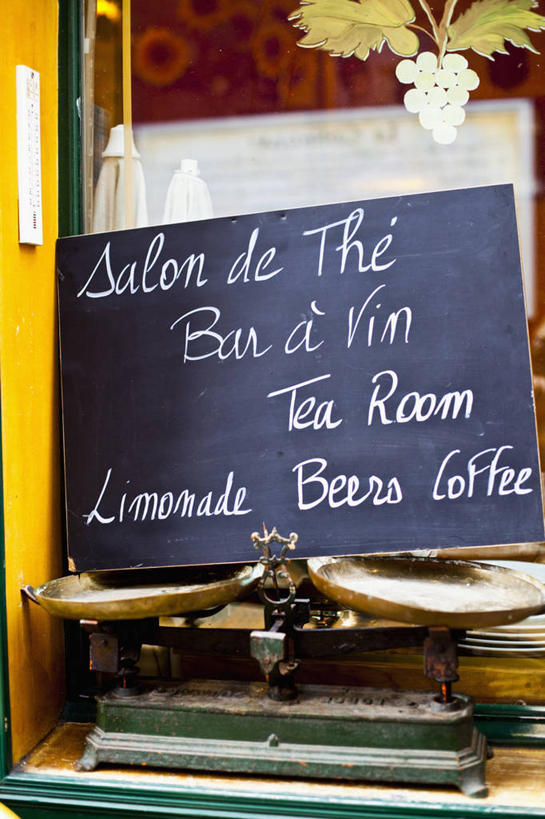 Salon de Thé
Bar à Vin
Tea Room
Limonade Beers Coffee